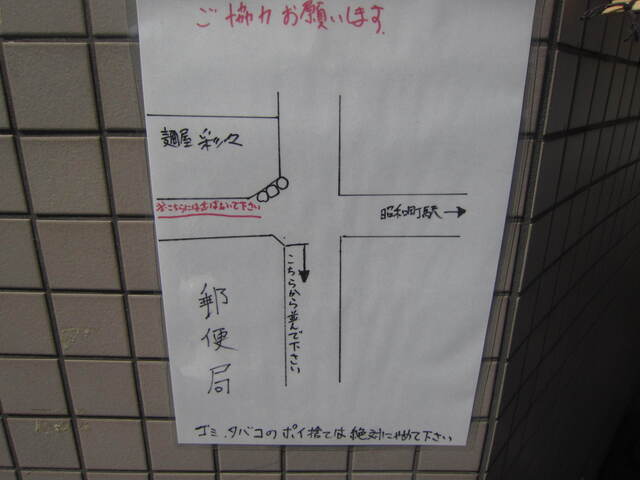 ご協力お願いします。
麺屋 彩々
※こちらには並ばないで下さい
昭和町駅→
こちらから並んで下さい
郵便局
ゴミ、タバコのポイ捨ては絶対にやめて下さい